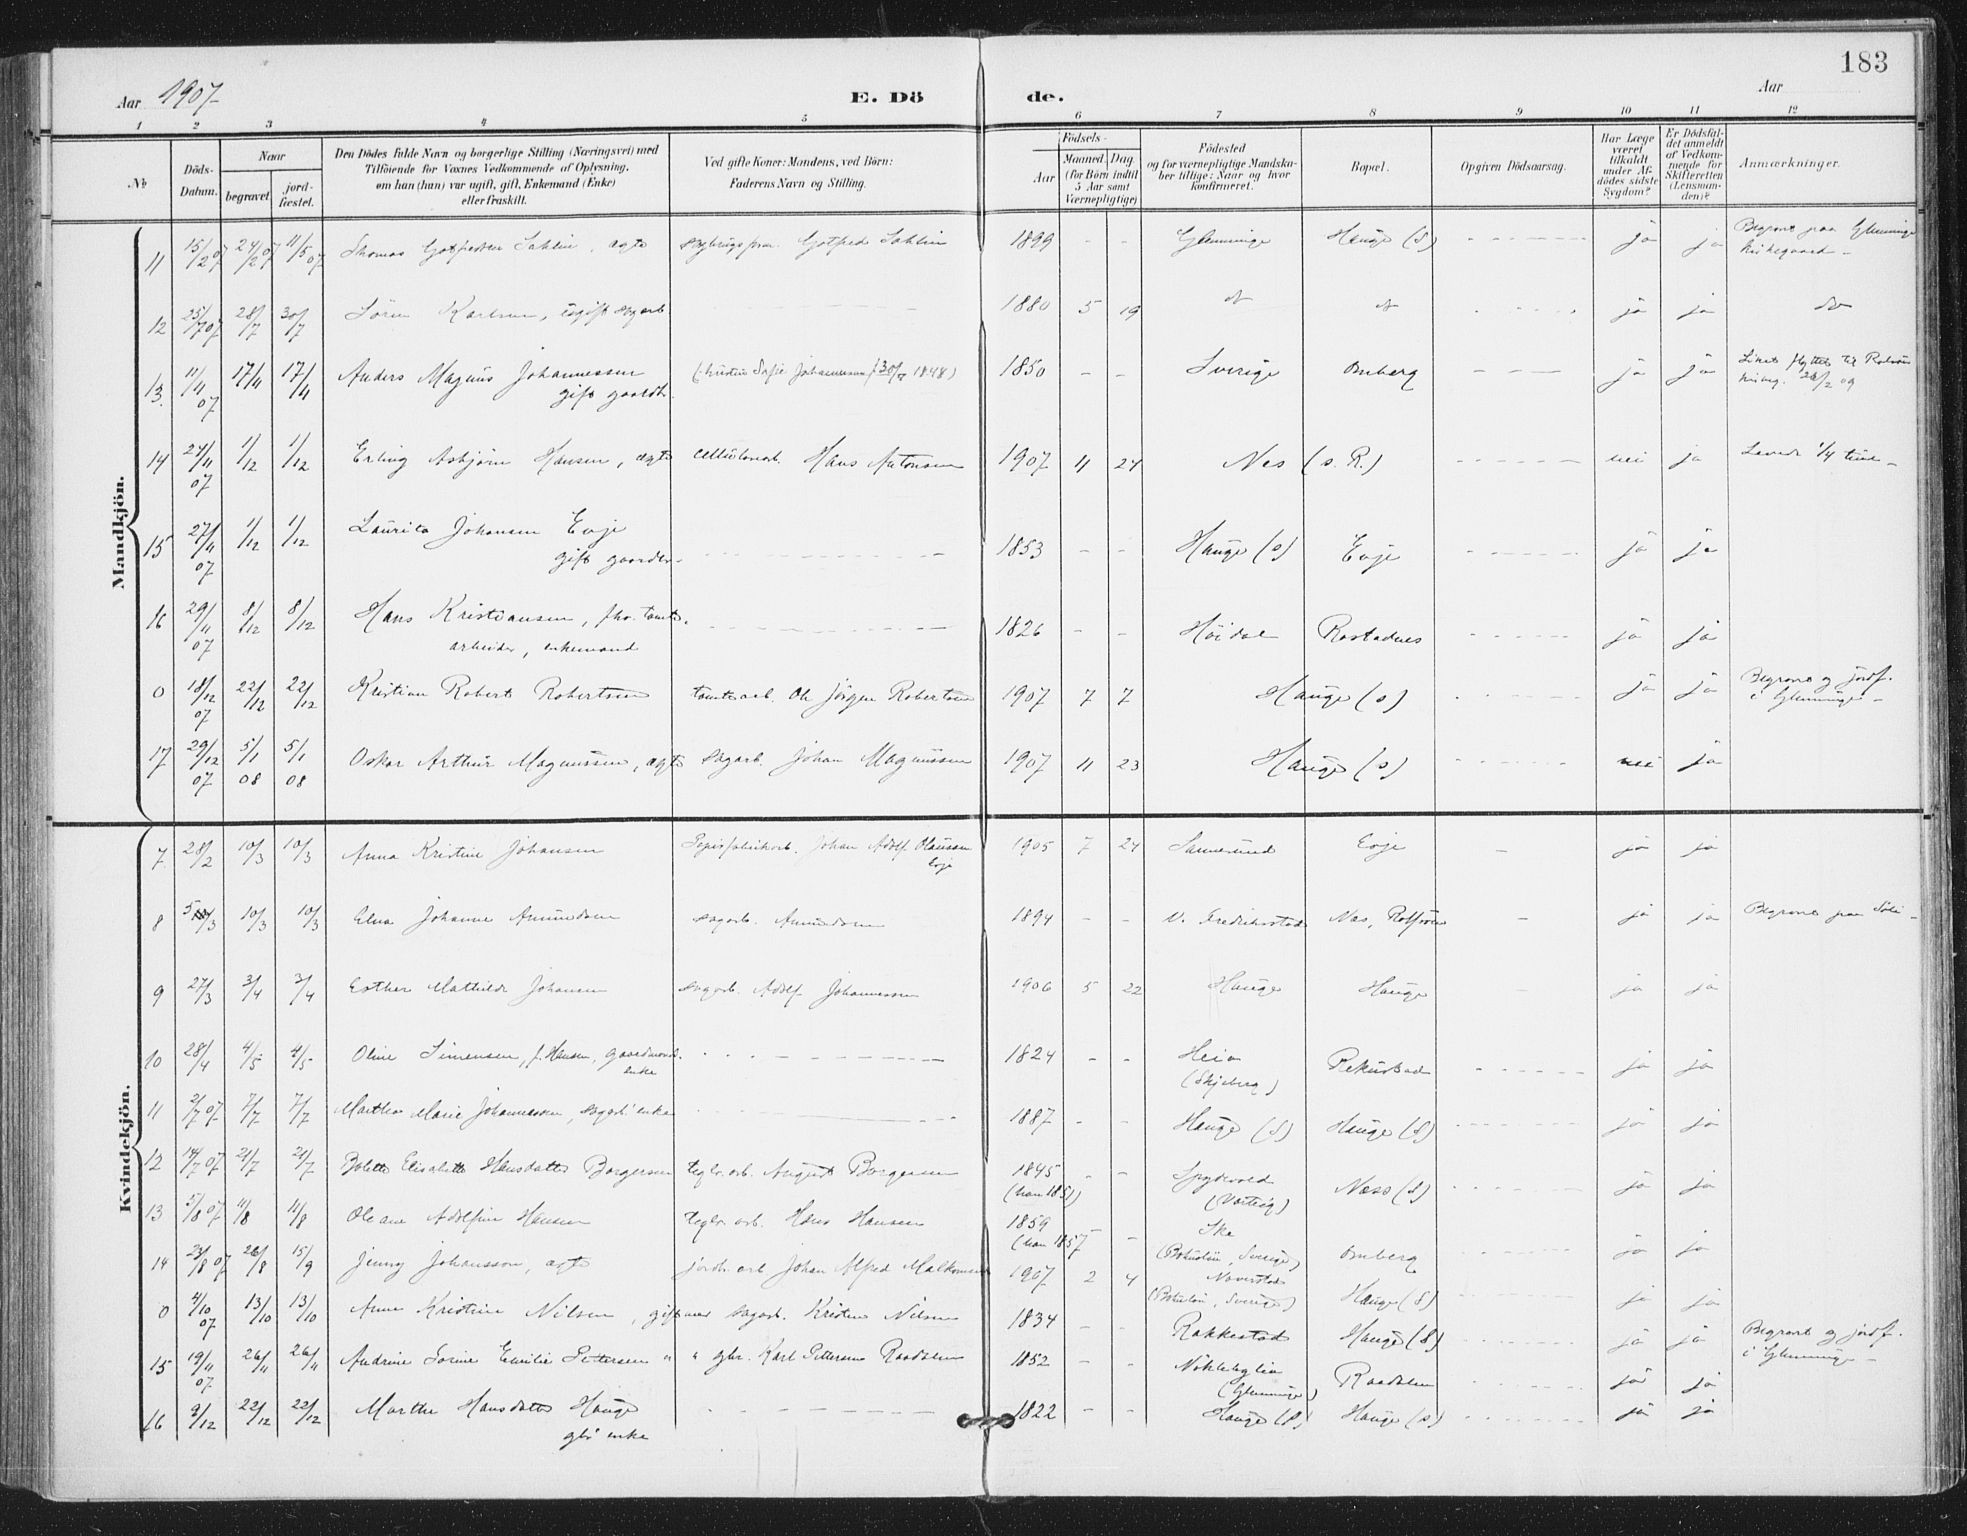 183
Aar 1907. E. Dö de. Aar
1 2 3 4 5 6 7 8 9 10 11 12
No
Döds-Datum.
Naar begravet jord-fæstet.
Den Dödes fulde Navn og borgerlige Stilling (Næringsvei) med Tilföiende for Voxnes Vedkommende af Oplysning, om han (hun) var ugift, gift, Enkemand (Enke) eller fraskilt.
Ved gifte Koner: Mandens, ved Börn: Faderens Navn og Stilling.
Födsels-
Aar Maaned Dag (for Börn indtil 5 Aar samt Værnepligtige)
Födested og for værnepligtige Mandskaber tillige: Naar og hvor konfirmeret.
Bopæl.
Opgiven Dödsaarsag.
Har Læge været tilkaldt under Afdödes sidste Sygdom?
Er Dödsfaldet anmeldt af Vedkommende for Skifteretten (Lensmanden)?
Anmærkninger.
Mandkjön.
11 15/2 07 24/2 07 11/5 07 Thomas Gotfredsen Sahlin, ægte Gotfred Sahlin 1899 - - Glemminge Hauge (S) ja ja Begravet paa Glemminge kirkegaard -
12 25/7 07 28/7 30/7 Sören Karlsen, ugift sagarb 1880 5 19 ja ja do
13. 11/4 07 17/4 17/4 Anders Magnus Johannessen gift gaardbr. (Kristine Sofie Johannessen 1848) 1850 - - Sverige Omberg ja ja Liket flyttet til Rolvsöy
14 24/11 07 1/12 1/12 Erling Asbjörn Hansen, ægte cellulosearb. Hans Antonsen 1907 11 24 Nes (s. R.) nei ja Levede 1/4 time -
15 27/11 07 1/12 1/12 Laurits Johansen Evje gift gaardbr. 1853 - - Hauge (s) Evje ja ja
16 29/11 07 8/12 8/12 Hans Kristiansen, fhv. tomte-
arbeider, enkemand 1826 - - Höidal Rostadnes ja ja
0 18/12 07 22/12 22/12 Kristian Robert Robertsen tomtearb. Ole Jörgen Robertsen 1907 7 7 Hauge (s) ja ja Begravet og jordf. i Glemminge -
17 29/12 07 5/1 08 5/1 08 Oskar Arthur Magnussen, ægte sagarb. Johan Magnussen 1907 11 23 Hauge (s) nei ja
Kvindekjön.
7 28/2 10/3 10/3 Anna Kristine Johansen Papirfabrikarb. Johan Adolf Olaussen Evje 1905 7 24 Sannesund Evje - ja ja
8 5/3 10/3 10/3 Elna Johanne Amundsen sagarb. Amundsen 1894 - - V. Fredrikstad Nes, Rolfsöen - ja ja Begravet paa Soli -
9 27/3 3/4 3/4 Esther Mathilde Johansen sagarb. Adolf Johannessen 1906 5 22 Hauge Hauge - ja ja
10 28/4 4/5 4/5 Oline Simensen, f. Hansen, gaardmands
enke 1824 - - Heia (Skjeberg) Rekustad ja ja
11 2/7 07 7/7 7/7 Marthea Marie Johannessen, sagarb. enke 1887 - - Hauge (S) Hauge (S) ja ja
12 14/7 07 21/7 21/7 Bolette Elisabeth Hansdatter Borgersen teglv.arb. August Borgersen 1845 (han 1851) - - Spydevold (Varteig) Næss (S) ja ja
13 5/8 07 11/8 11/8 Oleane Adolfine Hansen teglv.arb. Hans Hansen 1859 (han 1857) - Ske (Bohuslän, Sverige) Omberg ja ja
14 23/8 07 26/8 15/9 Jenny Johansson, ægte jernb.arb Johan Alfred Malkomsen 1907 2 4 Naverstad (Bohuslän, Sverige) Hauge (S) ja ja
0 4/10 07 13/10 13/10 Anne Kristine Nilsen, gift med sagarb. Kristen Nilsen 1834 - - Rakkestad Hauge (S) ja ja Begravet og jordf. i Glemminge -
15 19/11 07 26/11 26/11 Andrine Josine Emilie Pettersen " " gbr. Karl Pettersen Raadalen 1852 - - Nökleby (Glemminge) Raadalen ja ja
16 9/12 22/12 22/12 Marthe Hansdatter Hauge gbr enke 1822 - - Hauge (S) Hauge (s) ja ja